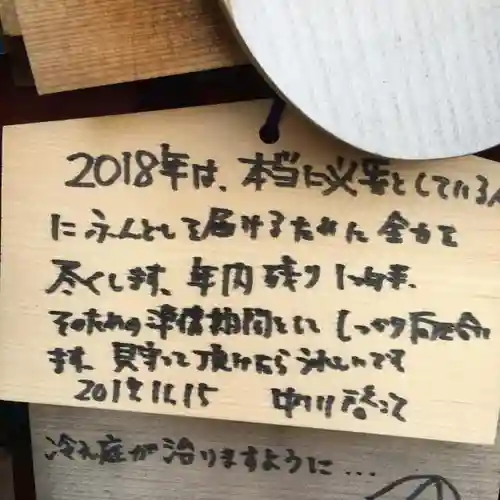 2018年は、本当に必要としている人
に ふんどしを届けるために 全力を
尽くします、年内残り1ヶ月半、
そのための準備期間として しっかり
ます、見守って頂けたらうれしいです
2017.11.15 中川
冷え症が治りますように...